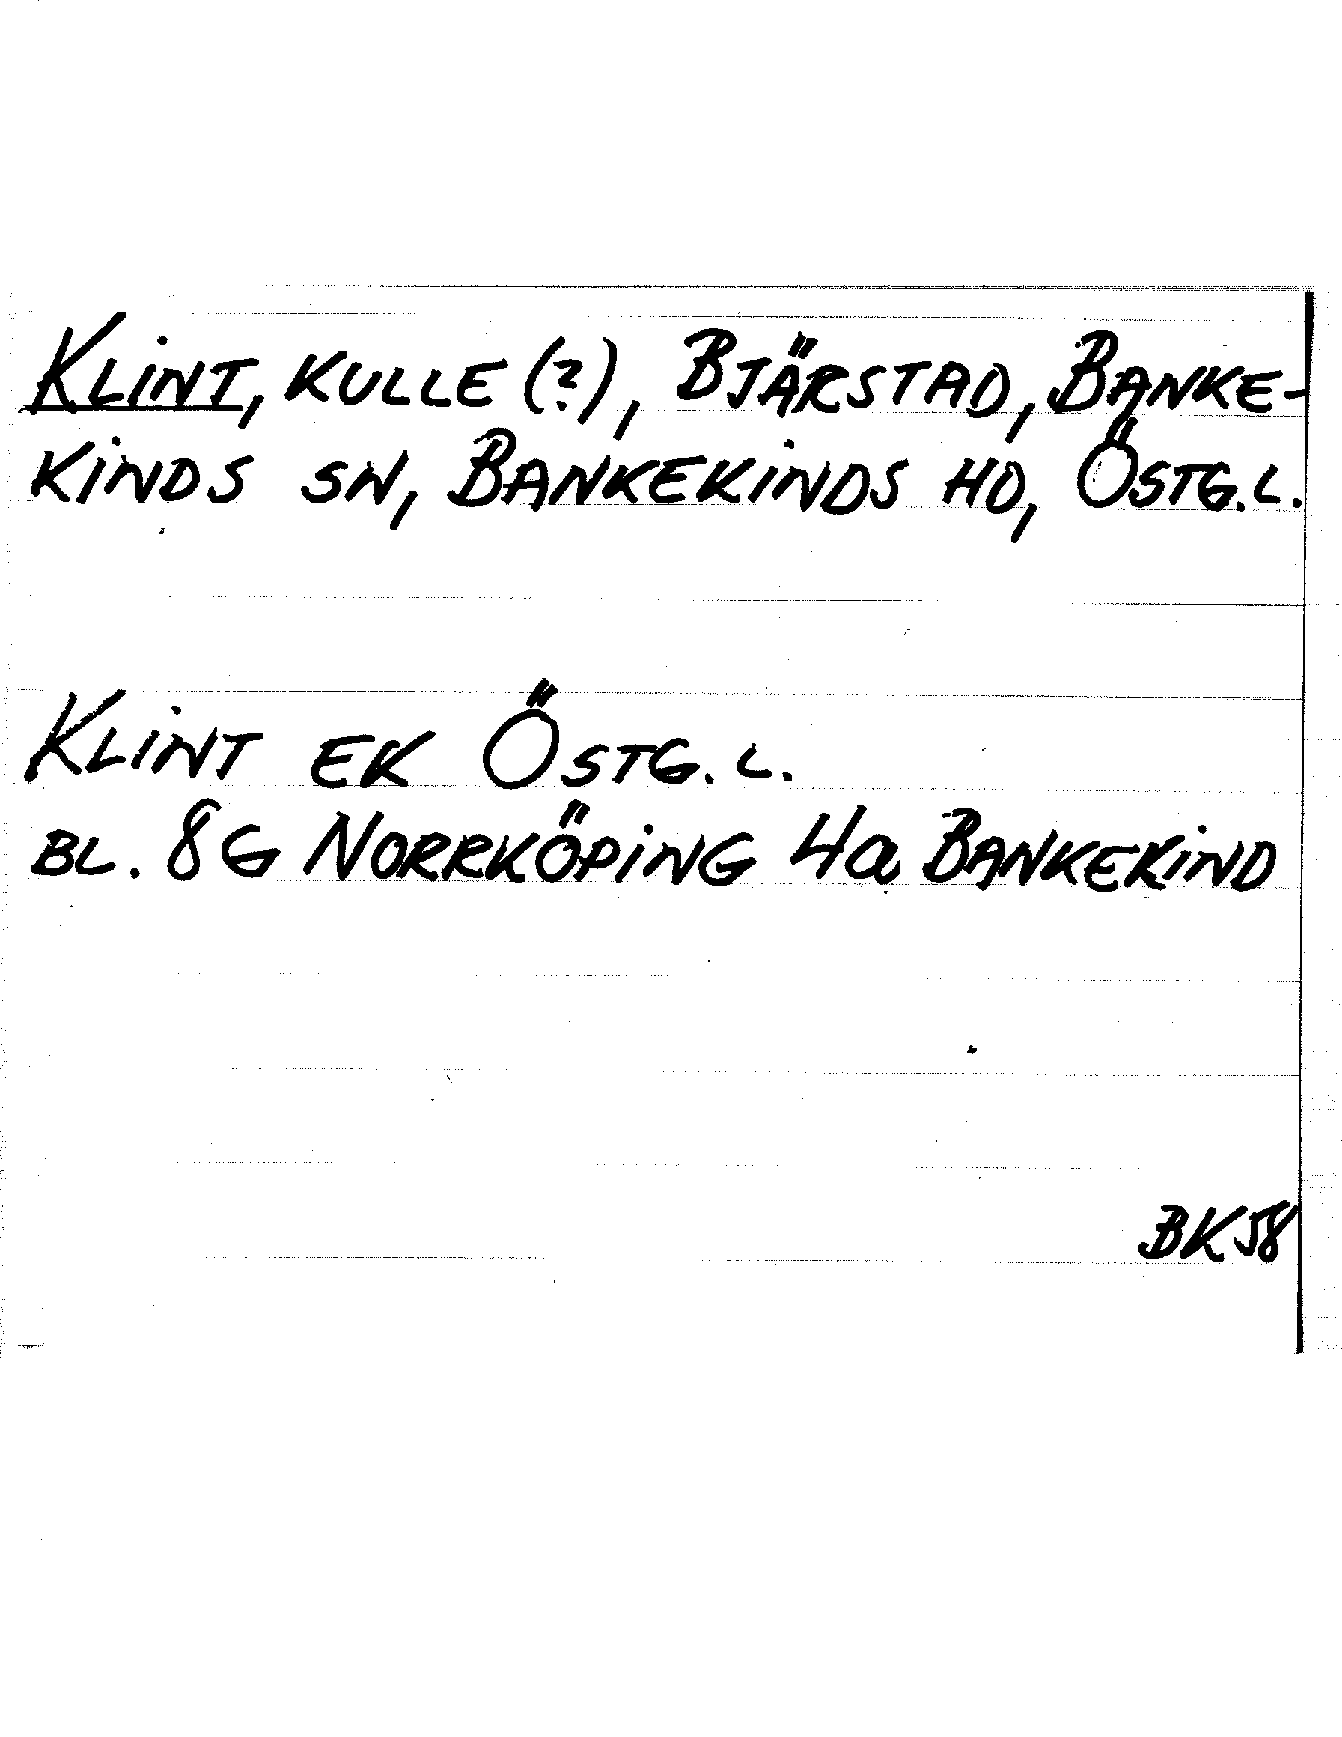 KLINT, KULLE (?), BJÄRSTAD, BANKE-
KINDS SN, BANKEKINDS HD, ÖSTG. L.
KLINT EK ÖSTG. L.
BL. 8G NORRKÖPING 4a BANKEKIND
BK58